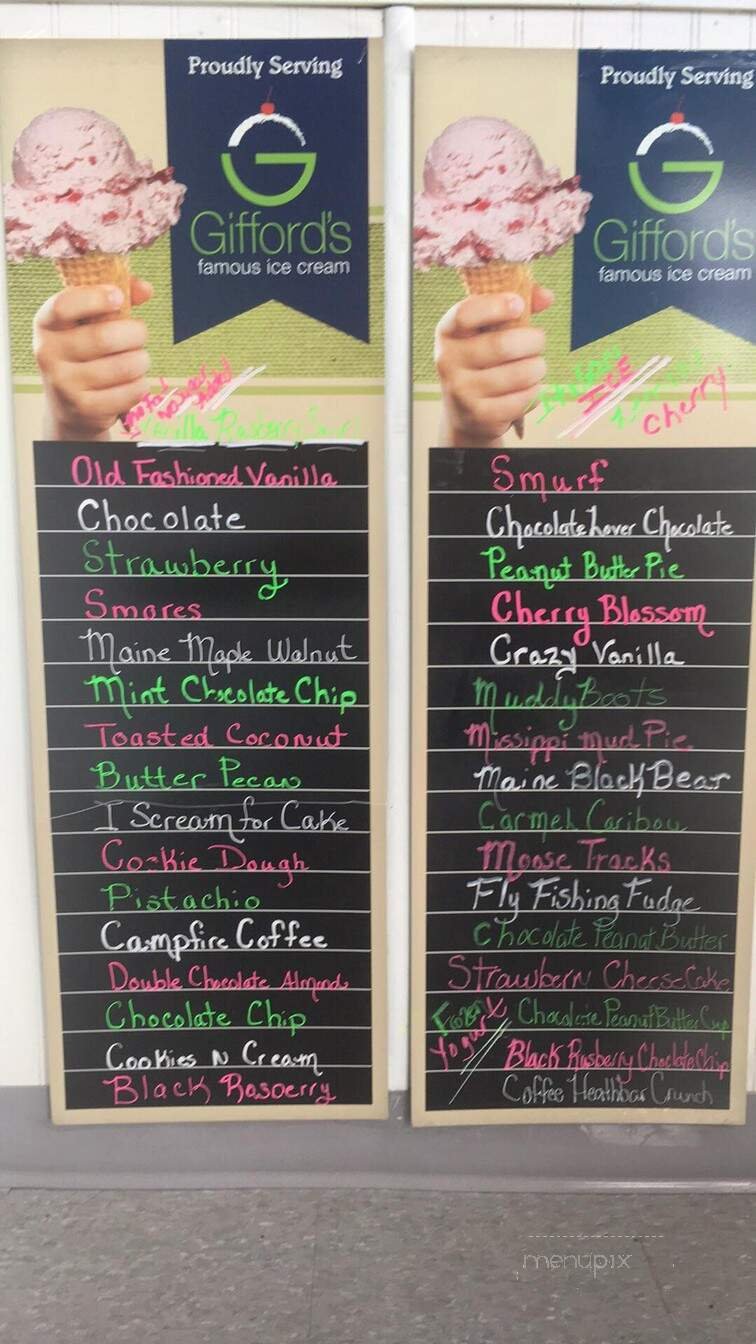 Proudly Serving
Gifford's
famous ice cream
No Fat
No Sugar
Added
Vanilla
Old Fashioned Vanilla
Chocolate
Strawberry
Smores
Maine Maple Walnut
Mint Chocolate Chip
Toasted Coconut
Butter Pecan
I Scream for Cake
Cookie Dough
Pistachio
Campfire Coffee
Double Chocolate Almond
Chocolate Chip
Cookies N Cream
Black Rasberry
Proudly Serving
Gifford's
famous ice cream
ICE
Cherry
Smurf
Chocolate Lover Chocolate
Peanut Butter Pie
Cherry Blossom
Crazy Vanilla
Muddy Boots
Missippi Mud Pie
Maine Black Bear
Carmel Caribou
Moose Tracks
Fly Fishing Fudge
Chocolate Peanut Butter
Strawberry CheeseCake
Frozen Yogurt
Chocolate Peanut Butter Cup
Black Rasberry Choclate Chip
Coffee Heathbar Crunch
menupix